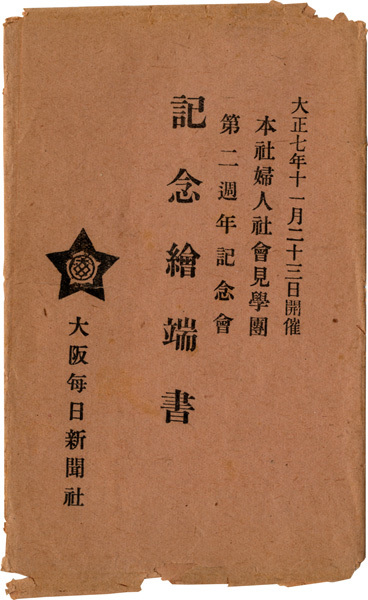 大正七年十一月二十三日開催
本社婦人社會見學團
第二週年記念會
記念繪端書
大阪每日新聞社